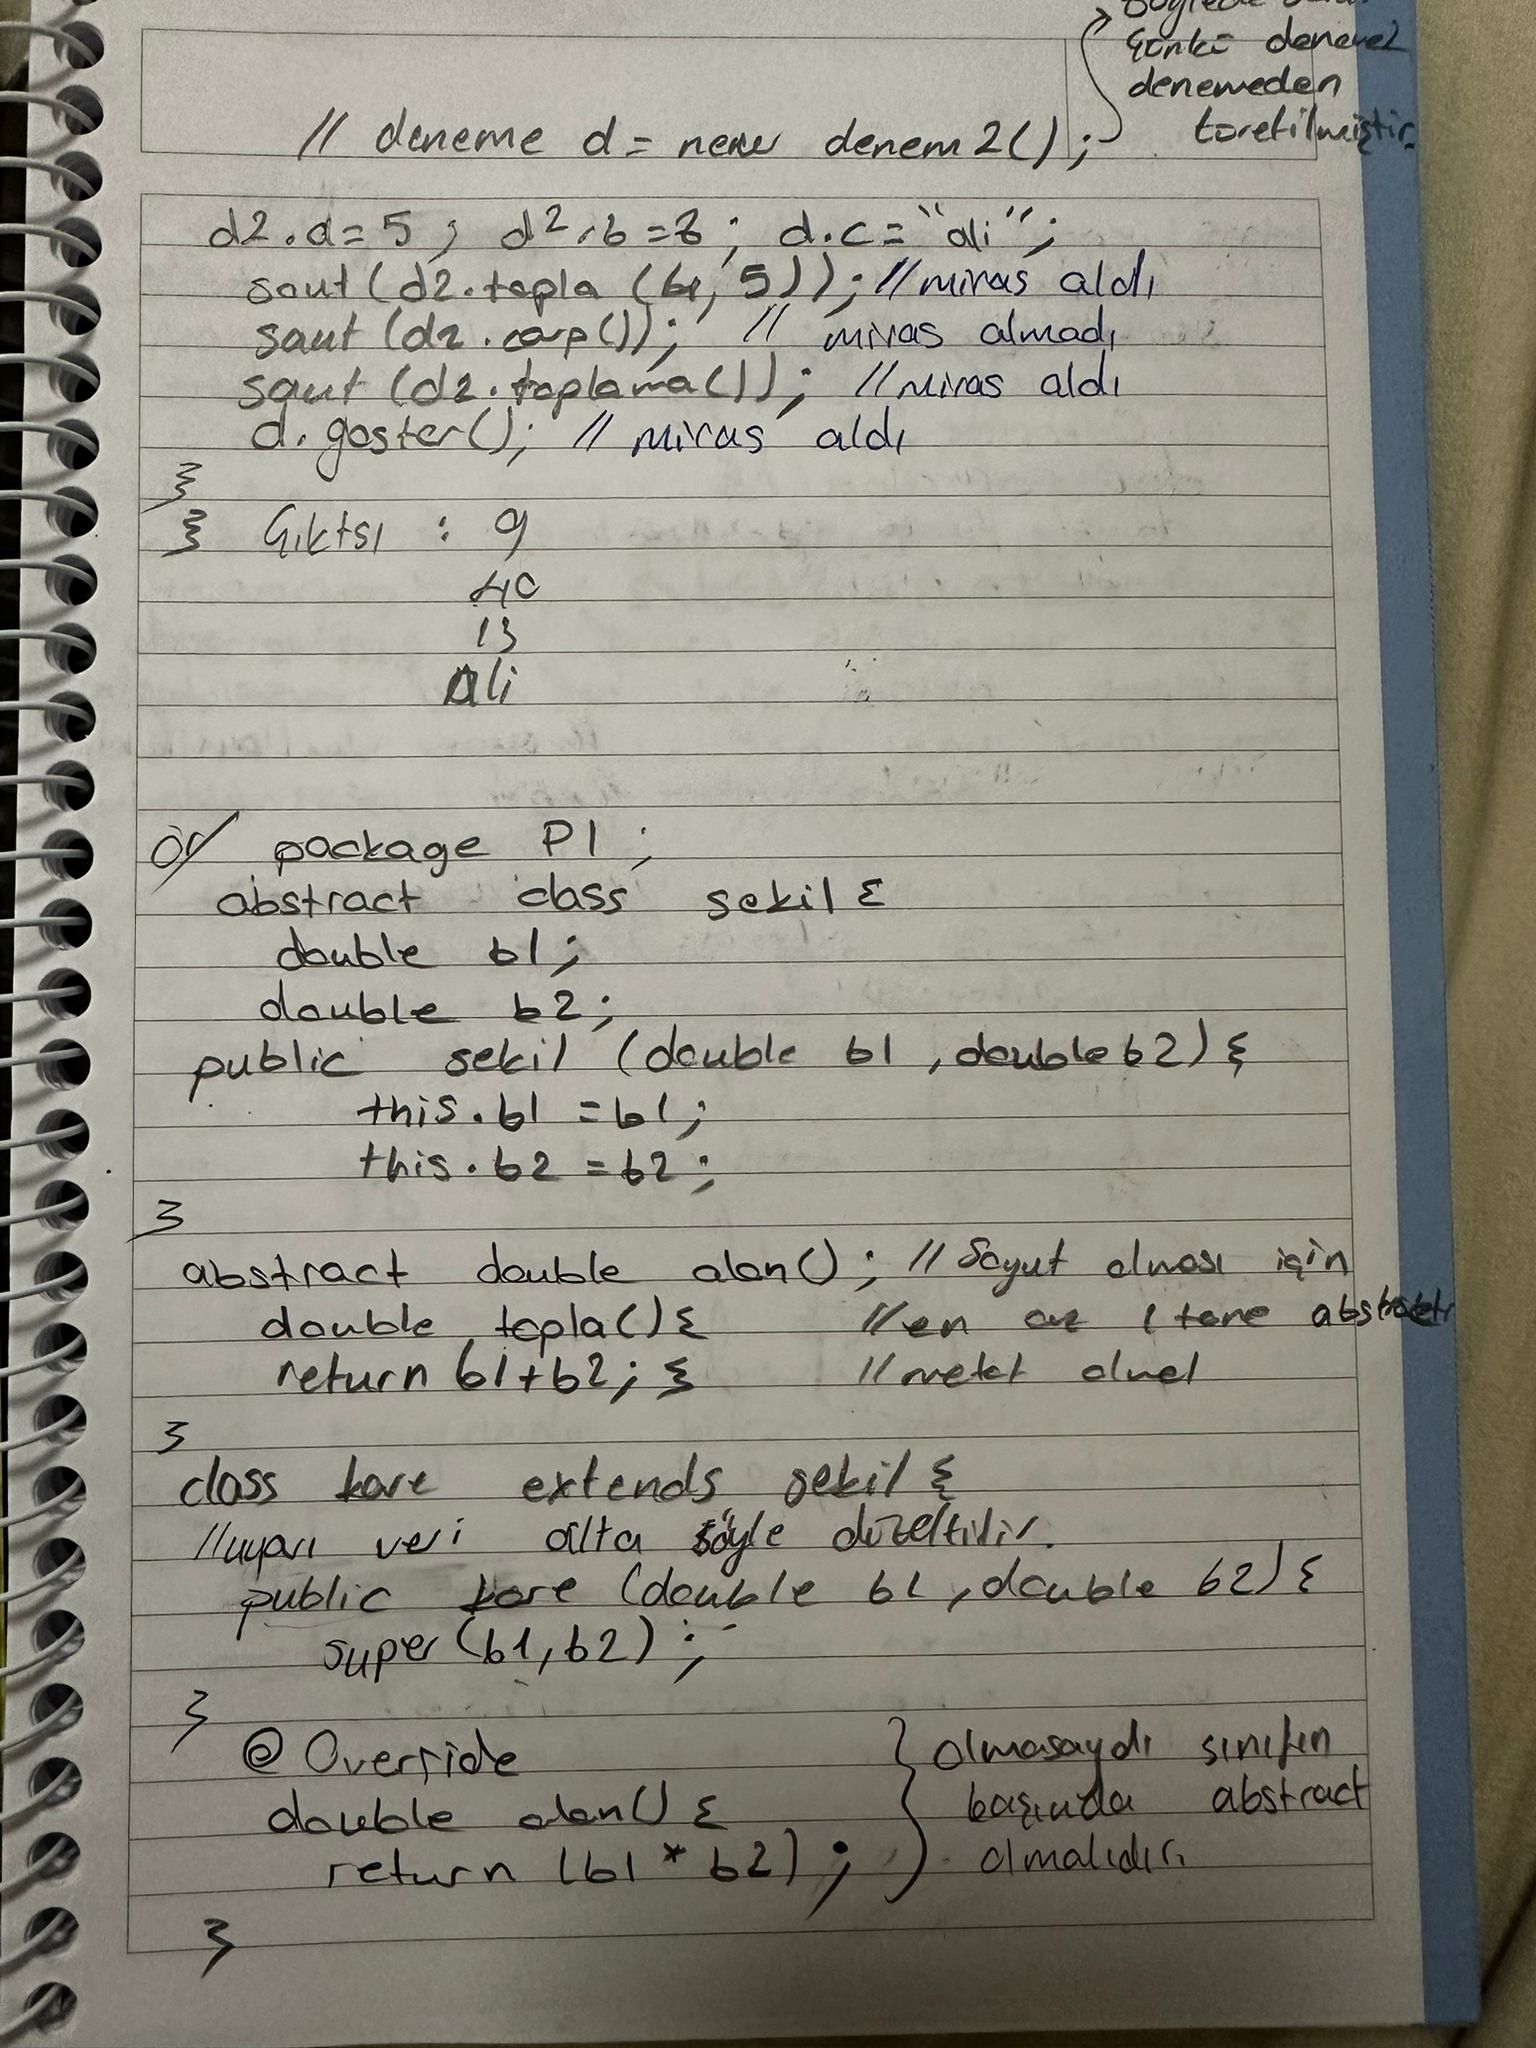 çünkü denene2
denemeden
türetilmiştir.
// deneme d = new denem2();
d2.a=5; d2.b=8; d.c="ali";
sout(d2.topla(4,5)); //miras aldı
sout(d2.carp()); // miras almadı
sout(d2.toplama()); //miras aldı
d.goster(); // miras aldı
}
} Çıktsı : 9
40
13
Ali
ör/ package P1;
abstract class sekil {
double b1;
double b2;
public sekil (double b1, double b2) {
this.b1 = b1;
this.b2 = b2;
}
abstract double alan(); //Soyut olması için
double topla() { //en az 1 tane abstract
return b1+b2; } //metot olmal
}
class kare extends sekil {
//uyarı veri altta şöyle düzeltilir.
public kare (double b1, double b2) {
super(b1,b2);
}
@Override } olmasaydı sınıfın
double alan() { başında abstract
return (b1 * b2); olmalıdır.
}